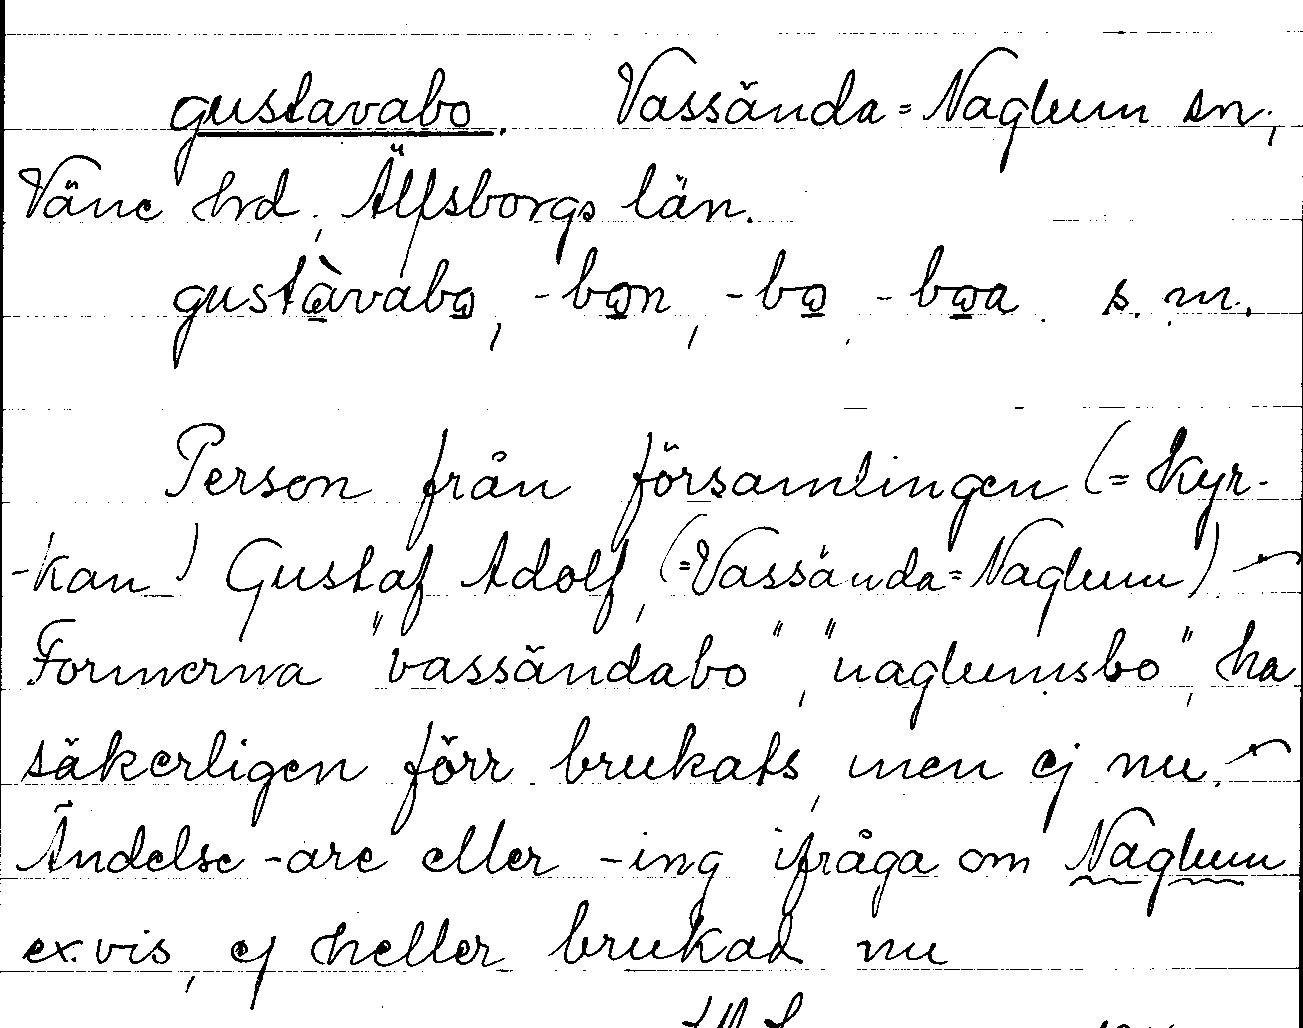 gustavabo. Vassända=Naglum sn.,
Väne hrd, Älfsborgs län.
gustàvabo, -bon, -bo, -boa. s. m.
Person från församlingen (=kyr-
-kan) Gustaf Adolf, (=Vassända=Naglum) —
Formerna "vassändabo", "naglumsbo", ha
säkerligen förr brukats, men ej nu. —
Ändelse -are eller -ing ifråga om Naglum
ex.vis, ej heller brukad nu